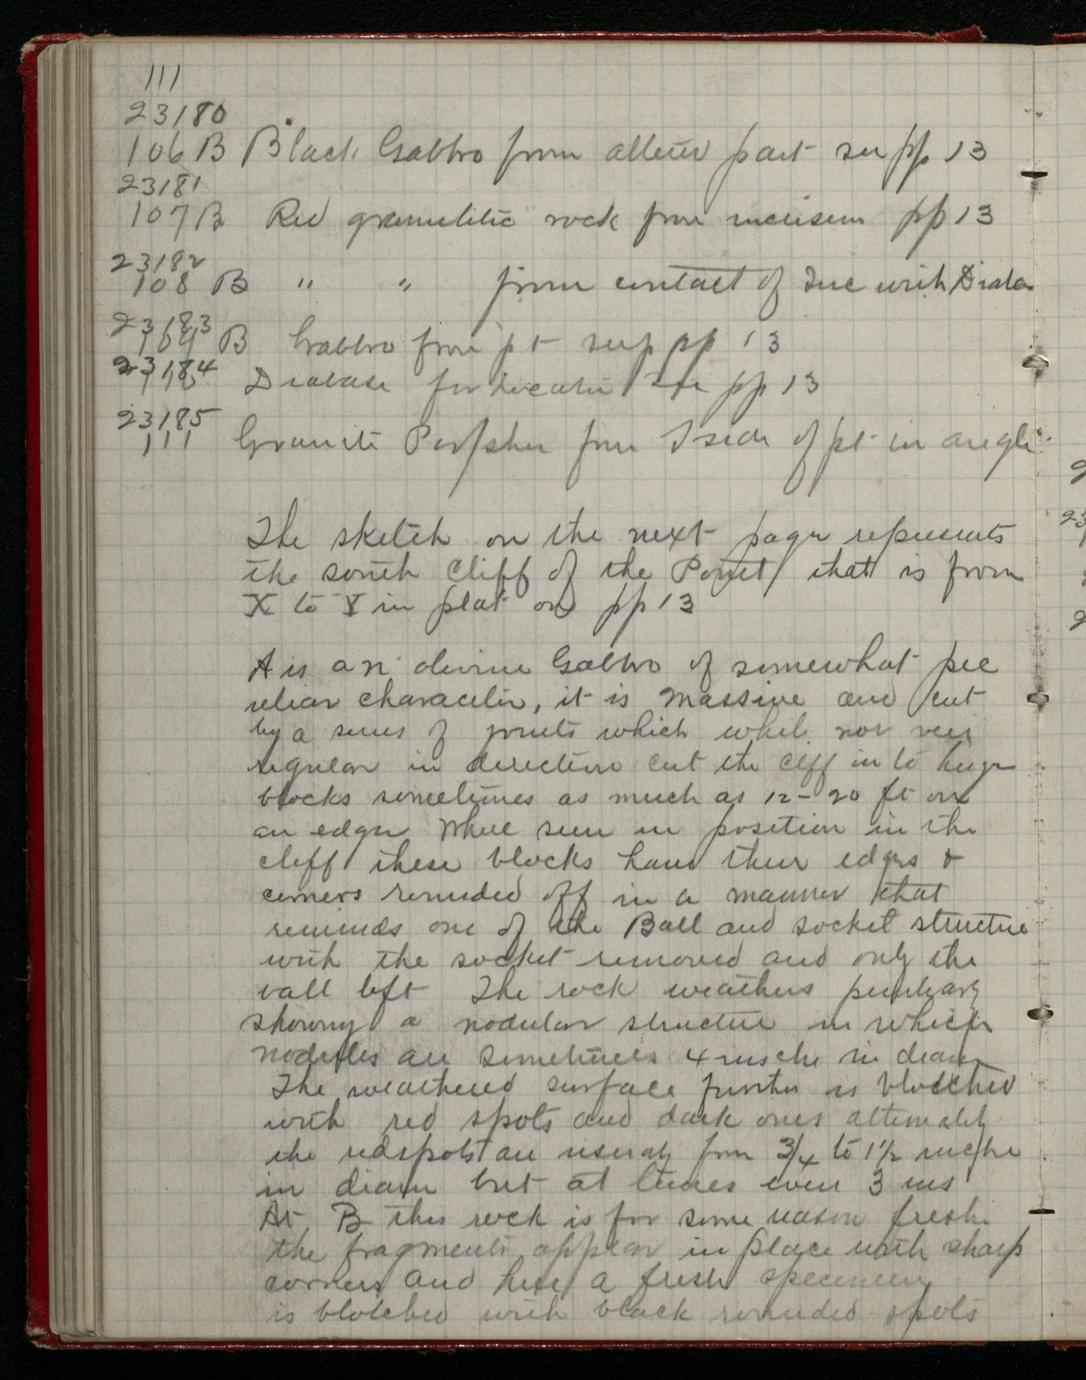 111
23180
106 B Black Gabbro from altered part see pp 13
23181
107 B Red granulitic rock from inclusion pp 13
23182
108 B " " from contact of Inc with Diaba
23183
109 B Gabbro from pt see pp 13
23184
110 Diabase for location see pp 13
23185
111 Granite Porphry from S side of pt in angle
The sketch on the next page represents
the south cliff of the Point, that is from
X to Y in plat on pp 13
A is an olivine Gabbro of somewhat pec
uliar character, it is massive and cut
by a series of joints which while not very
regular in direction cut the cliff in to huge
blocks sometimes as much as 12-20 ft on
an edge. When seen in position in the
cliff these blocks have their edges &
corners rounded off in a manner that
reminds one of the Ball and socket structure
with the socket removed and only the
ball left The rock weathers peculiarly
showing a nodular structure in which
nodules are sometimes 4 inche in diam
The weathered surface further is blotched
with red spots and dark ones alternately
the redspots are usually from 3/4 to 1 1/2 inche
in diam but at times even 3 ins
At B this rock is for some reason fresh.
the fragments appear in place with sharp
corners and here a fresh specimen
is blotched with black rounded spots